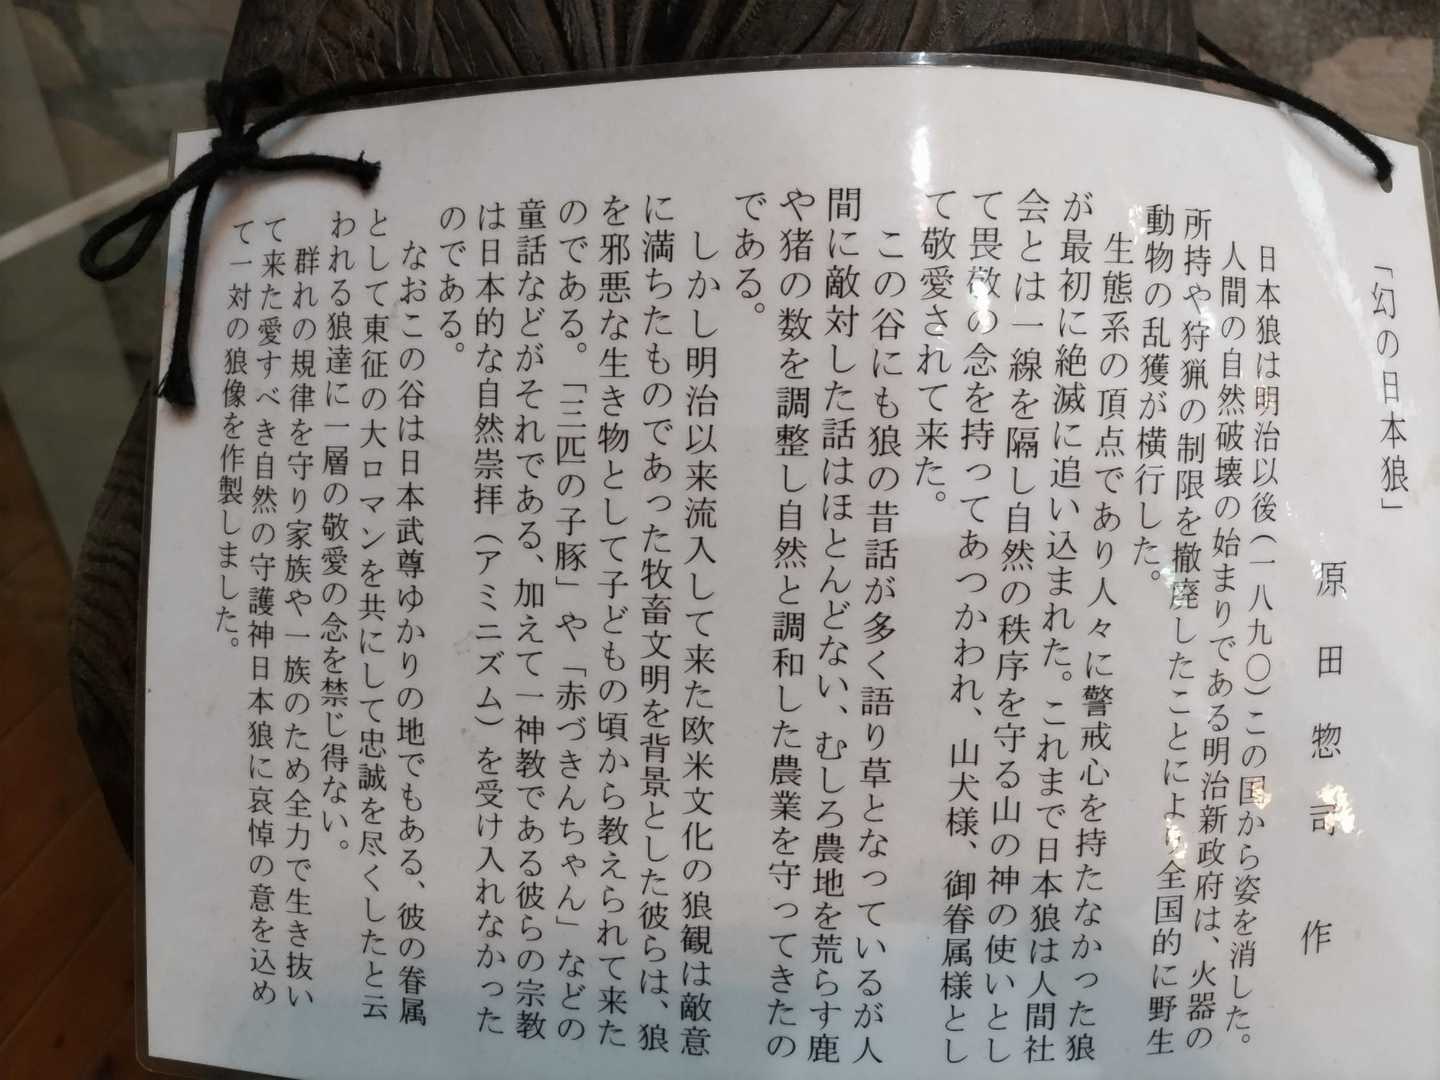 「幻の日本狼」
原田惣司 作
日本狼は明治以後(一八九〇)この国から姿を消した。
人間の自然破壊の始まりである明治新政府は、火器の
所持や狩猟の制限を撤廃したことにより全国的に野生
動物の乱獲が横行した。
生態系の頂点であり人々に警戒心を持たなかった狼
が最初に絶滅に追い込まれた。これまで日本狼は人間社
会とは一線を隔し自然の秩序を守る山の神の使いとし
て畏敬の念を持ってあつかわれ、山犬様、御眷属様とし
て敬愛されて来た。
この谷にも狼の昔話が多く語り草となっているが人
間に敵対した話はほとんどない、むしろ農地を荒らす鹿
や猪の数を調整し自然と調和した農業を守ってきたの
である。
しかし明治以来流入して来た欧米文化の狼観は敵意
に満ちたものであった牧畜文明を背景とした彼らは、狼
を邪悪な生き物として子どもの頃から教えられて来た
のである。「三匹の子豚」や「赤づきんちゃん」などの
童話などがそれである、加えて一神教である彼らの宗教
は日本的な自然崇拝(アミニズム)を受け入れなかった
のである。
なおこの谷は日本武尊ゆかりの地でもある、彼の眷属
として東征の大ロマンを共にして忠誠を尽くしたと云
われる狼達に一層の敬愛の念を禁じ得ない。
群れの規律を守り家族や一族のため全力で生き抜い
て来た愛すべき自然の守護神日本狼に哀悼の意を込め
て一対の狼像を作製しました。